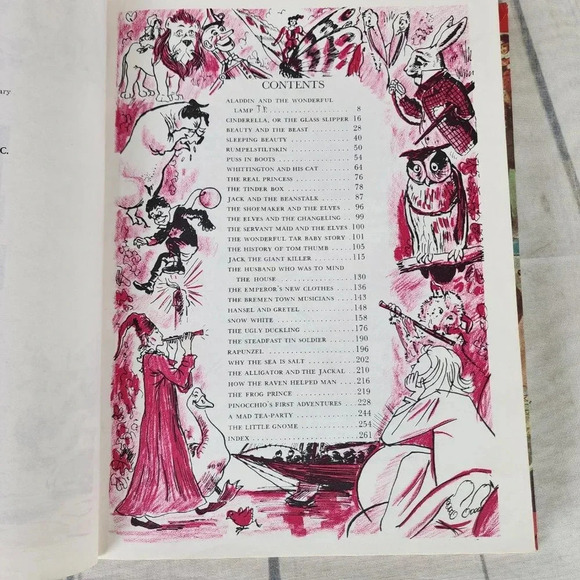 ary
C.
CONTENTS
ALADDIN AND THE WONDERFUL
LAMP . . . . . . . . . . . . . . . . 8
CINDERELLA, OR THE GLASS SLIPPER 16
BEAUTY AND THE BEAST . . . . . . . 28
SLEEPING BEAUTY . . . . . . . . . . 40
RUMPELSTILTSKIN . . . . . . . . . . 50
PUSS IN BOOTS . . . . . . . . . . . 54
WHITTINGTON AND HIS CAT . . . . . . 64
THE REAL PRINCESS . . . . . . . . . 76
THE TINDER BOX . . . . . . . . . . 78
JACK AND THE BEANSTALK . . . . . . 87
THE SHOEMAKER AND THE ELVES . . 96
THE ELVES AND THE CHANGELING . . 99
THE SERVANT MAID AND THE ELVES 100
THE WONDERFUL TAR BABY STORY . 101
THE HISTORY OF TOM THUMB . . . . 105
JACK THE GIANT KILLER . . . . . . . 115
THE HUSBAND WHO WAS TO MIND
THE HOUSE . . . . . . . . . . . . 130
THE EMPEROR'S NEW CLOTHES . . . . 136
THE BREMEN TOWN MUSICIANS . . . . 143
HANSEL AND GRETEL . . . . . . . . . 148
SNOW WHITE . . . . . . . . . . . . 158
THE UGLY DUCKLING . . . . . . . . . 176
THE STEADFAST TIN SOLDIER . . . . . 190
RAPUNZEL . . . . . . . . . . . . . 196
WHY THE SEA IS SALT . . . . . . . . 202
THE ALLIGATOR AND THE JACKAL . . 210
HOW THE RAVEN HELPED MAN . . . . 216
THE FROG PRINCE . . . . . . . . . . 219
PINOCCHIO'S FIRST ADVENTURES . . . 228
A MAD TEA-PARTY . . . . . . . . . . 244
THE LITTLE GNOME . . . . . . . . . 254
INDEX . . . . . . . . . . . . . . . 261